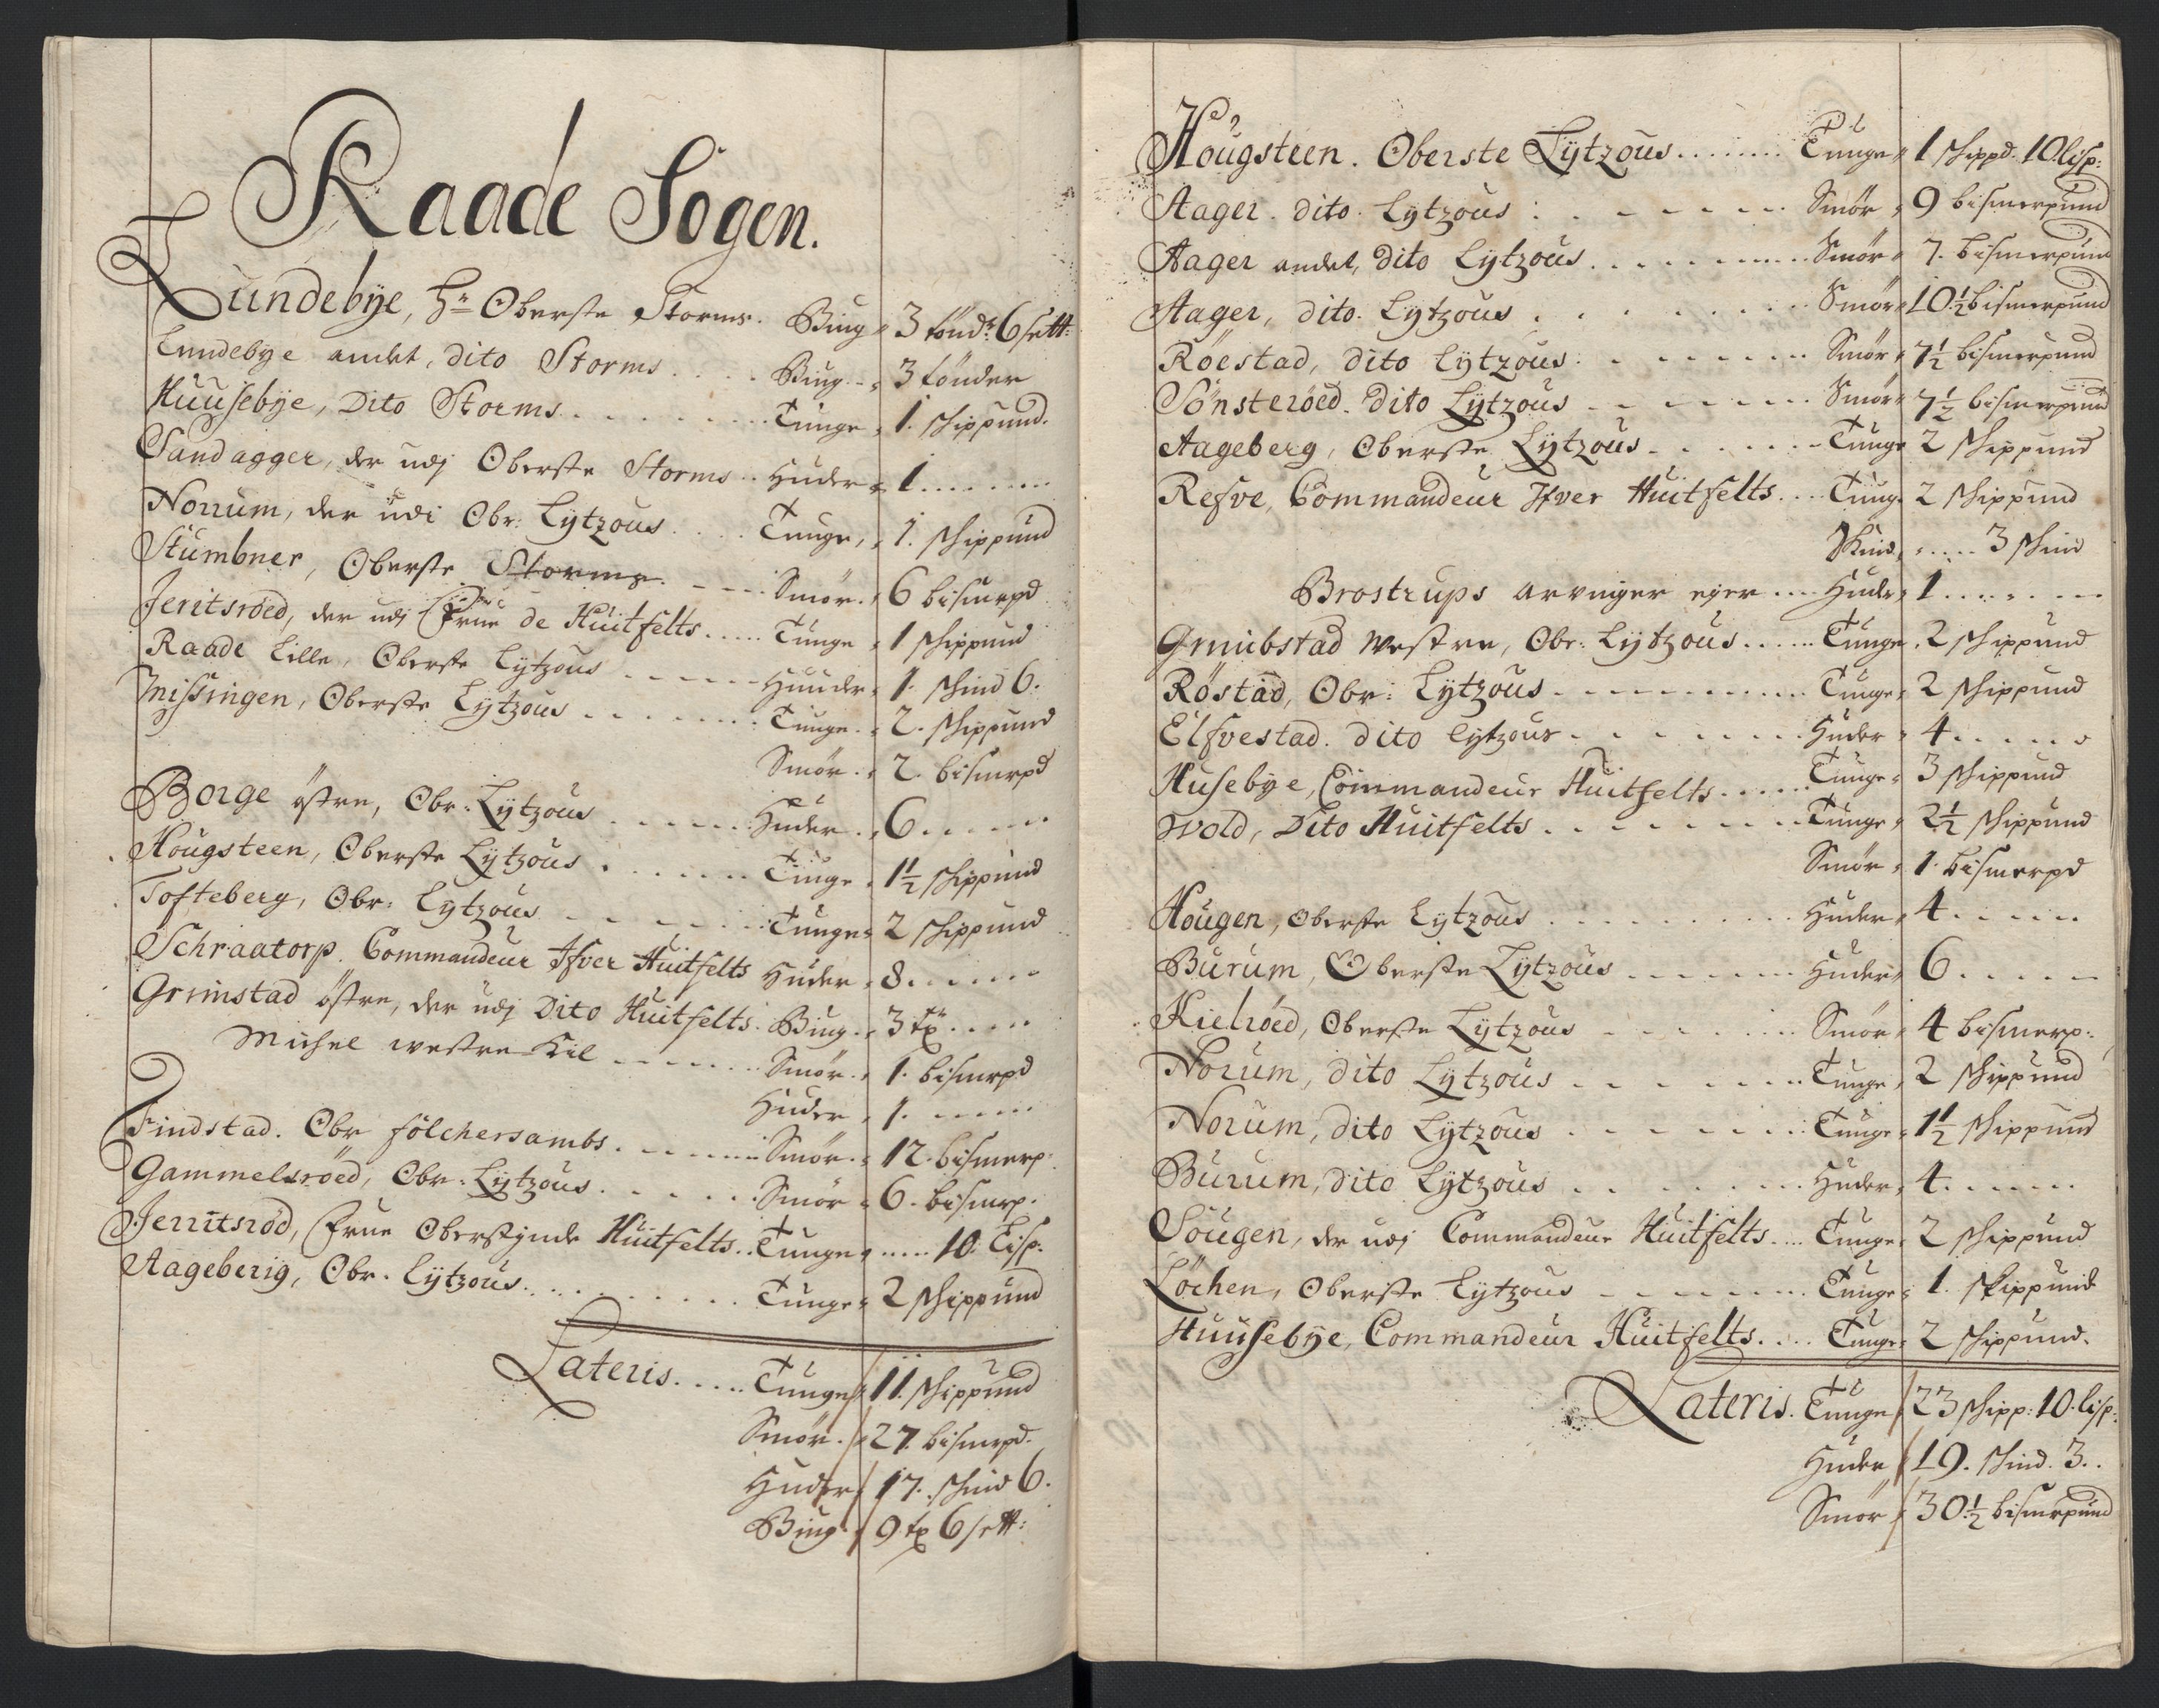 Raade Sogen.
Lundebÿe, Hr Oberste Storms. Biug 3 tönd: 6 sett:
Lundebye andet, dito Storms .... Biug 3 tönder
Huusebÿe, Dito Storms ....... Tunge 1. schippund.
Sandagger, der udj Oberste Storms .. Huder 1 ........
Norrum, der udi Obr: Lÿtzous .... Tunge 1. schippund
Stumbner, Oberste Storms. --- Smör. 6 bismerpd
Jeritsröed, der udj Frue de Huitfelts ..... Tunge 1 schippund
Raade Lille, Oberste Lytzous ------ Huuder 1. schind 6.
Missingen, Oberste Lÿtzous ........ Tunge 2. schippund
Smör. 2. bismerpd
Borge östre, Obr: Lÿtzous ...... Huder 6 ......
Hougsteen, Oberste Lÿtzous ....... Tunge 1½ schippund
Tofteberg, Obr: Lytzous ------ Tunge 2 schippund
Schraatorp. Commandeur Ifver Huitfelts Huder 8 ......
Grimstad östre, der udj Dito Huitfelts. Biug 3 tr .....
Michel westre Kil ------- Smör. 1. bismerpd
Huder 1. ------
Findstad. Obr fölchersambs. ------ Smör 12. bismerp:
Gammelsröed, Obr. Lÿtzous. ...... Smör 6. bismerp.
Jerritsröd, Frue Oberstinde Huitfelts .. Tunge ..... 10. Lisp.
Aageberig, Obr. Lÿtzous .......... Tunge 2 schippund
Lateris ..... Tunge 11. schippund
Smör. 27. bismerpd.
Huder 17. schind 6.
Biug 9 tr 6 sett:
Hougsteen. Oberste Lÿtzous ........ Tunge 1 schippd. 10 lisp:
Aager. dito. Lytzous : ------ Smör 9 bismerpund
Aager andet, dito Lÿtzous ......... Smör 7. bismerpund
Aager, dito. Lytzous ........ Smör 10½ bismerpund
Röestad, dito Lÿtzous: ------- Smör 7½ bismerpund
Sönsteröed. dito Lÿtzous ------- Smör 7½ bismerpund
Aageberg, Oberste Lÿtzous ------ Tunge 2 schippund
Refve, Commandeur Ifver Huitfelts .... Tunge 2 schippund
Skind, ..... 3 schind
Brostrups arvinger ejer .... Huder 1 .......
Grimbstad westre, Obr: Lÿtzous ...... Tunge 2 schippund
Röstad, Obr: Lÿtzous ---------- Tunge 2 schippund
Elfvestad. dito Lytzous ------- Huder 4 ......
Husebye, Commandeur Huitfelts ..... Tunge 3 schippund
Wold, Dito Huitfelts ......... Tunge 2½ schippund
Smör 1. bismerpd
Hougen, Oberste Lÿtzous ......... Huder 4 .....
Burum, Oberste Lÿtzous ------- Huder 6 .....
Kielröed, Oberste Lÿtzous ------- Smör 4 bismerp:
Norum, dito Lÿtzous ------- Tunge 2 schippund
Norum, dito Lÿtzous ------- Tunge 1½ schippund
Burum, dito Lÿtzous ....... Huder 4 .......
Sougen, der udj Commandeur Huitfelts .... Tunge 2 schippund
Löchen, Oberste Lÿtzous ------- Tunge 1. skippund
Huusebÿe, Commandeur Huitfelts .... Tunge 2 schippund.
Lateris. Tunge 23 schipp: 10. lisp:
Huder 19. schind. 3..
Smör 30½ bismerpund